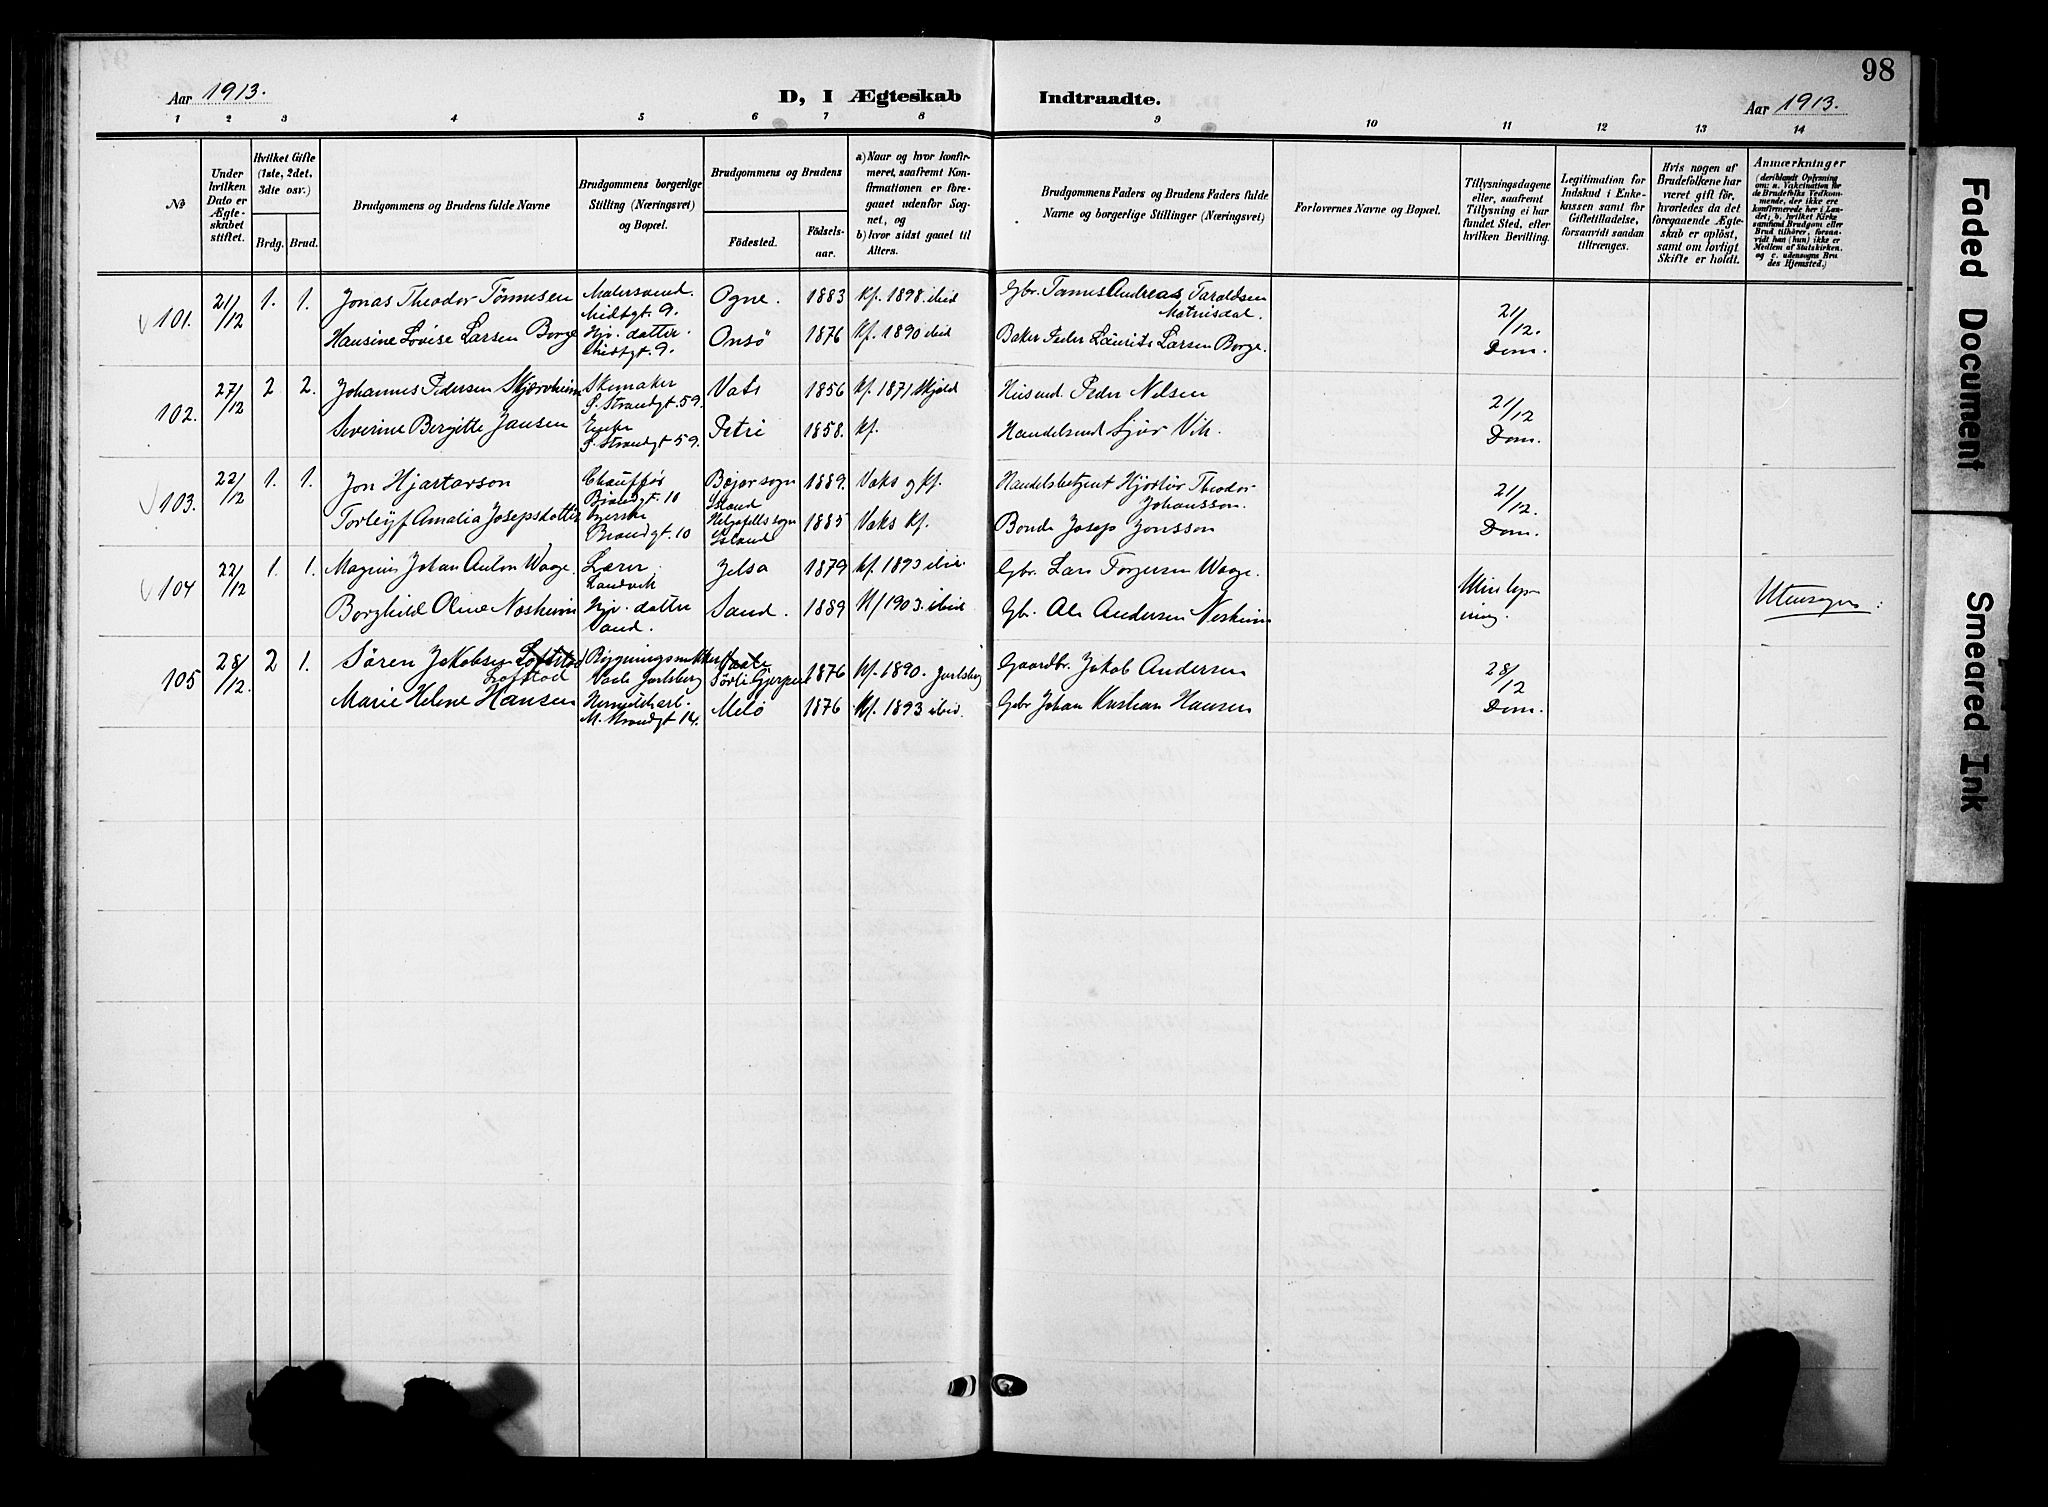 98
Aar 1913.
D, I Ægteskab Indtraadte.
Aar 1913.
1 2 3 4 5 6 7 8 9 10 11 12 13 14
No
Under hvilken Dato er Ægteskabet stiftet.
Hvilket Gifte (1ste, 2det, 3die osv.)
Brdg. Brud.
Brudgommens og Brudens fulde Navne
Brudgommens borgerlige Stilling (Næringsvei) og Bopæl.
Brudgommens og Brudens
Fødested.
Fødselsaar.
a) Naar og hvor konfirmeret, saafremt Konfirmationen er foregaaet udenfor Sognet, og
b) hvor sidst gaaet til Alters.
Brudgommens Faders og Brudens Faders fulde Navne og borgerlige Stillinger (Næringsvei)
Forlovernes Navne og Bopæl.
Tillysningsdagene eller, saafremt Tillysning ei har fundet Sted, efter hvilken Bevilling.
Legitimation for Indskud i Enkekassen samt for Giftetilladelse, forsaavidt saadan tiltrænges.
Hvis nogen af Brudefolkene har været gift før, hvorledes da det foregaaende Ægteskab er opløst, samt om lovligt Skifte er holdt.
Anmærkninger
(deriblandt Oplysning om: a. Vaksination for de Brudefolks Vedkommende, der ikke ere konfirmerede her i Landet; b. hvilket Kirkesamfund Brudgom eller Brud tilhører, forsaavidt han (hun) ikke er Medlem af Statskirken, og c. udensogns Brudes Hjemsted.)
101. 21/12 1. 1. Jonas Theodor Tønnesen Malersvend. Midtgt. 9. Ogne. 1883 Kf. 1898 ibid Gbr. Tønnes Andreas Taraldsen 21/12. Dom.
Hansine Lovise Larsen Borge Hjv. datter. Midtgt. 9. Onsö 1876 Kf. 1890 ibid Baker Peder Laurits Larsen Borge.
102. 27/12 2 2. Johannes Pedersen Skjærvheim Skomaker S. Strandgt 59. Vats 1856 Kf. 1871 Skjold Husmd. Peder Nilsen 21/12 Dom.
Severine Bergitte Jansen Enke S. Strandgt 59. Petri 1858. Kf. Handelsmd Sjur Vik.
103. 22/12 1. 1. Jon Hjartarson Chauffør Brandgt. 10 Bæjar sogn Island 1889. Vaks og Kf. Handelsbetjent Hjörtur Theodor Johansson. 21/12. Dom.
Torleyf Amalia Josepsdotter Syerske Brandgt. 10 Helgafells sogn Island 1885 Vaks Kf. Bonde Josep Jonsson
104 22/12 1. 1. Magnus Johan Anton Waage. Lærer. Landvik Jelsa 1879 Kf. 1893 ibid. Gbr. Lars Torgersen Waage.
Borghild Oline Nesheim Hjv. datter Sand. Sand. 1889 Kf 1903. ibid Gb. Ole Andersen Nesheim Utensogns:
105 28/12. 2 1. Søren Jakobsen Lofstad Bygningssnekker Vaale Jarlsberg Sørli Gjerpen 1876 Kf. 1890. Jarlsberg Gaardbr. Jakob Andersen 28/12 Dom.
Marie Helene Hansen M. Strandgt 14. Melö 1876 Kf. 1893 ibid. Gbr Johan Kristian Hansen
Faded Document
Smeared Ink